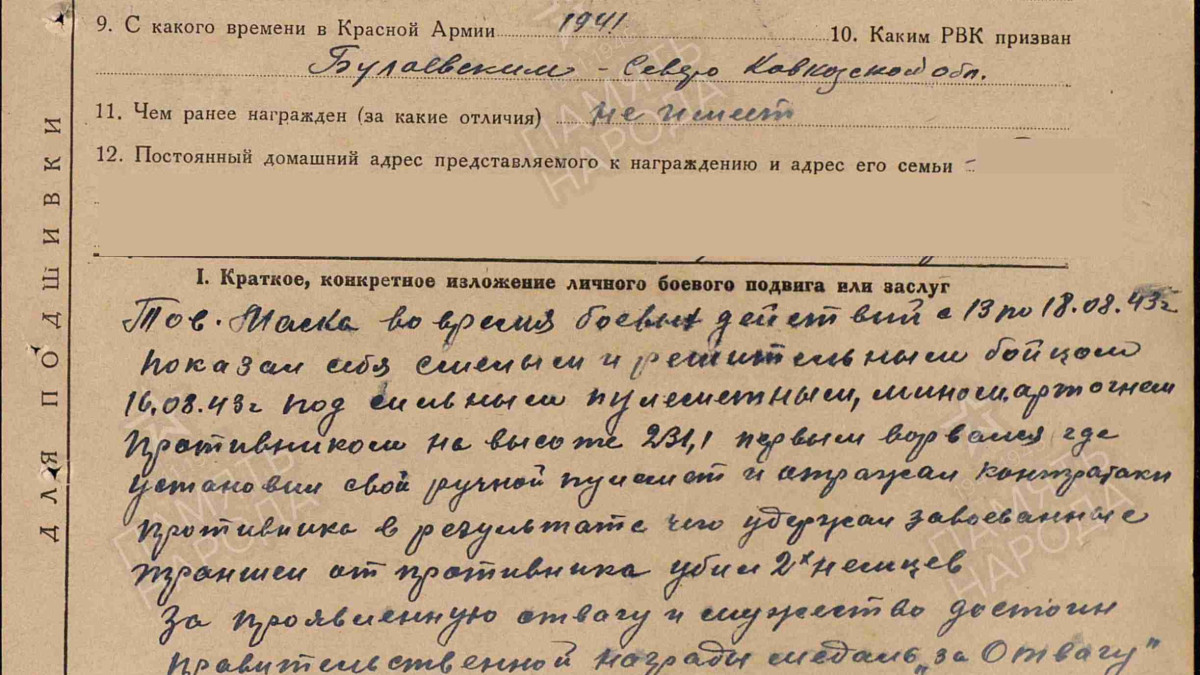 9. С какого времени в Красной Армии 1941 10. Каким РВК призван
Булаевским - Северо Кавказской обл.
11. Чем ранее награжден (за какие отличия) не имеет
12. Постоянный домашний адрес представляемого к награждению и адрес его семьи
I. Краткое, конкретное изложение личного боевого подвига или заслуг
Тов. Маска во время боевых действий с 13 по 18.08.43г
показал себя смелым и решительным бойцом
16.08.43г под сильным пулеметным, миномарт огнем
противником на высоте 231,1 первым ворвался где
установил свой ручной пулемет и отражал контратаки
противника в результате чего удержал завоеванные
траншеи от противника убил 2х немцев
За проявленную отвагу и мужество достоин
правительственной награды медаль „за Отвагу"
ДЛЯ ПОДШИВКИ
ПАМЯТЬ НАРОДА
ПАМЯТЬ НАРОДА
ПАМЯТЬ НАРОДА